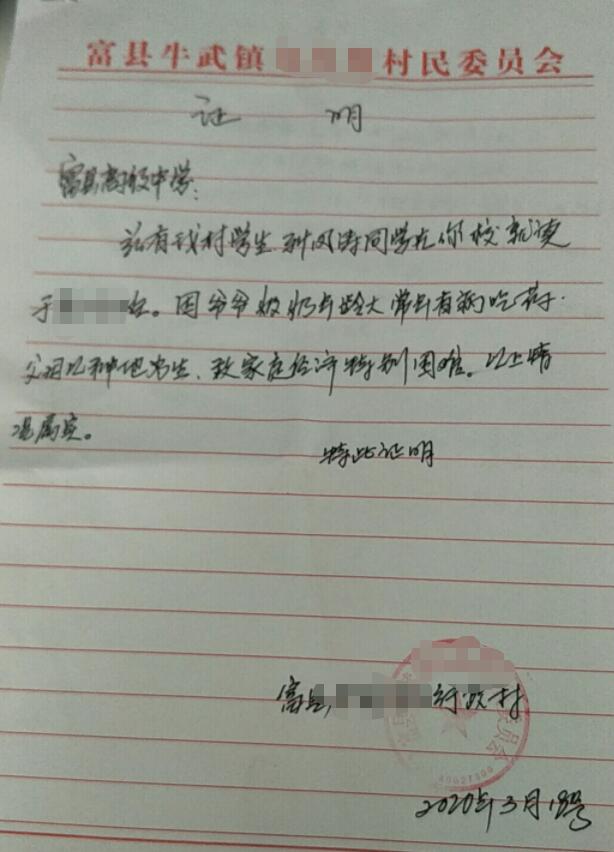 富县牛武镇 村民委员会
证 明
富县高级中学:
兹有我村学生刘风涛同学在你校就读
于 。因爷爷奶奶年龄大常年有病吃药.
父母以种地为生、致家庭经济特别困难。以上情
况属实。
特此证明
富县 行政村
委员会
2020年3月18号